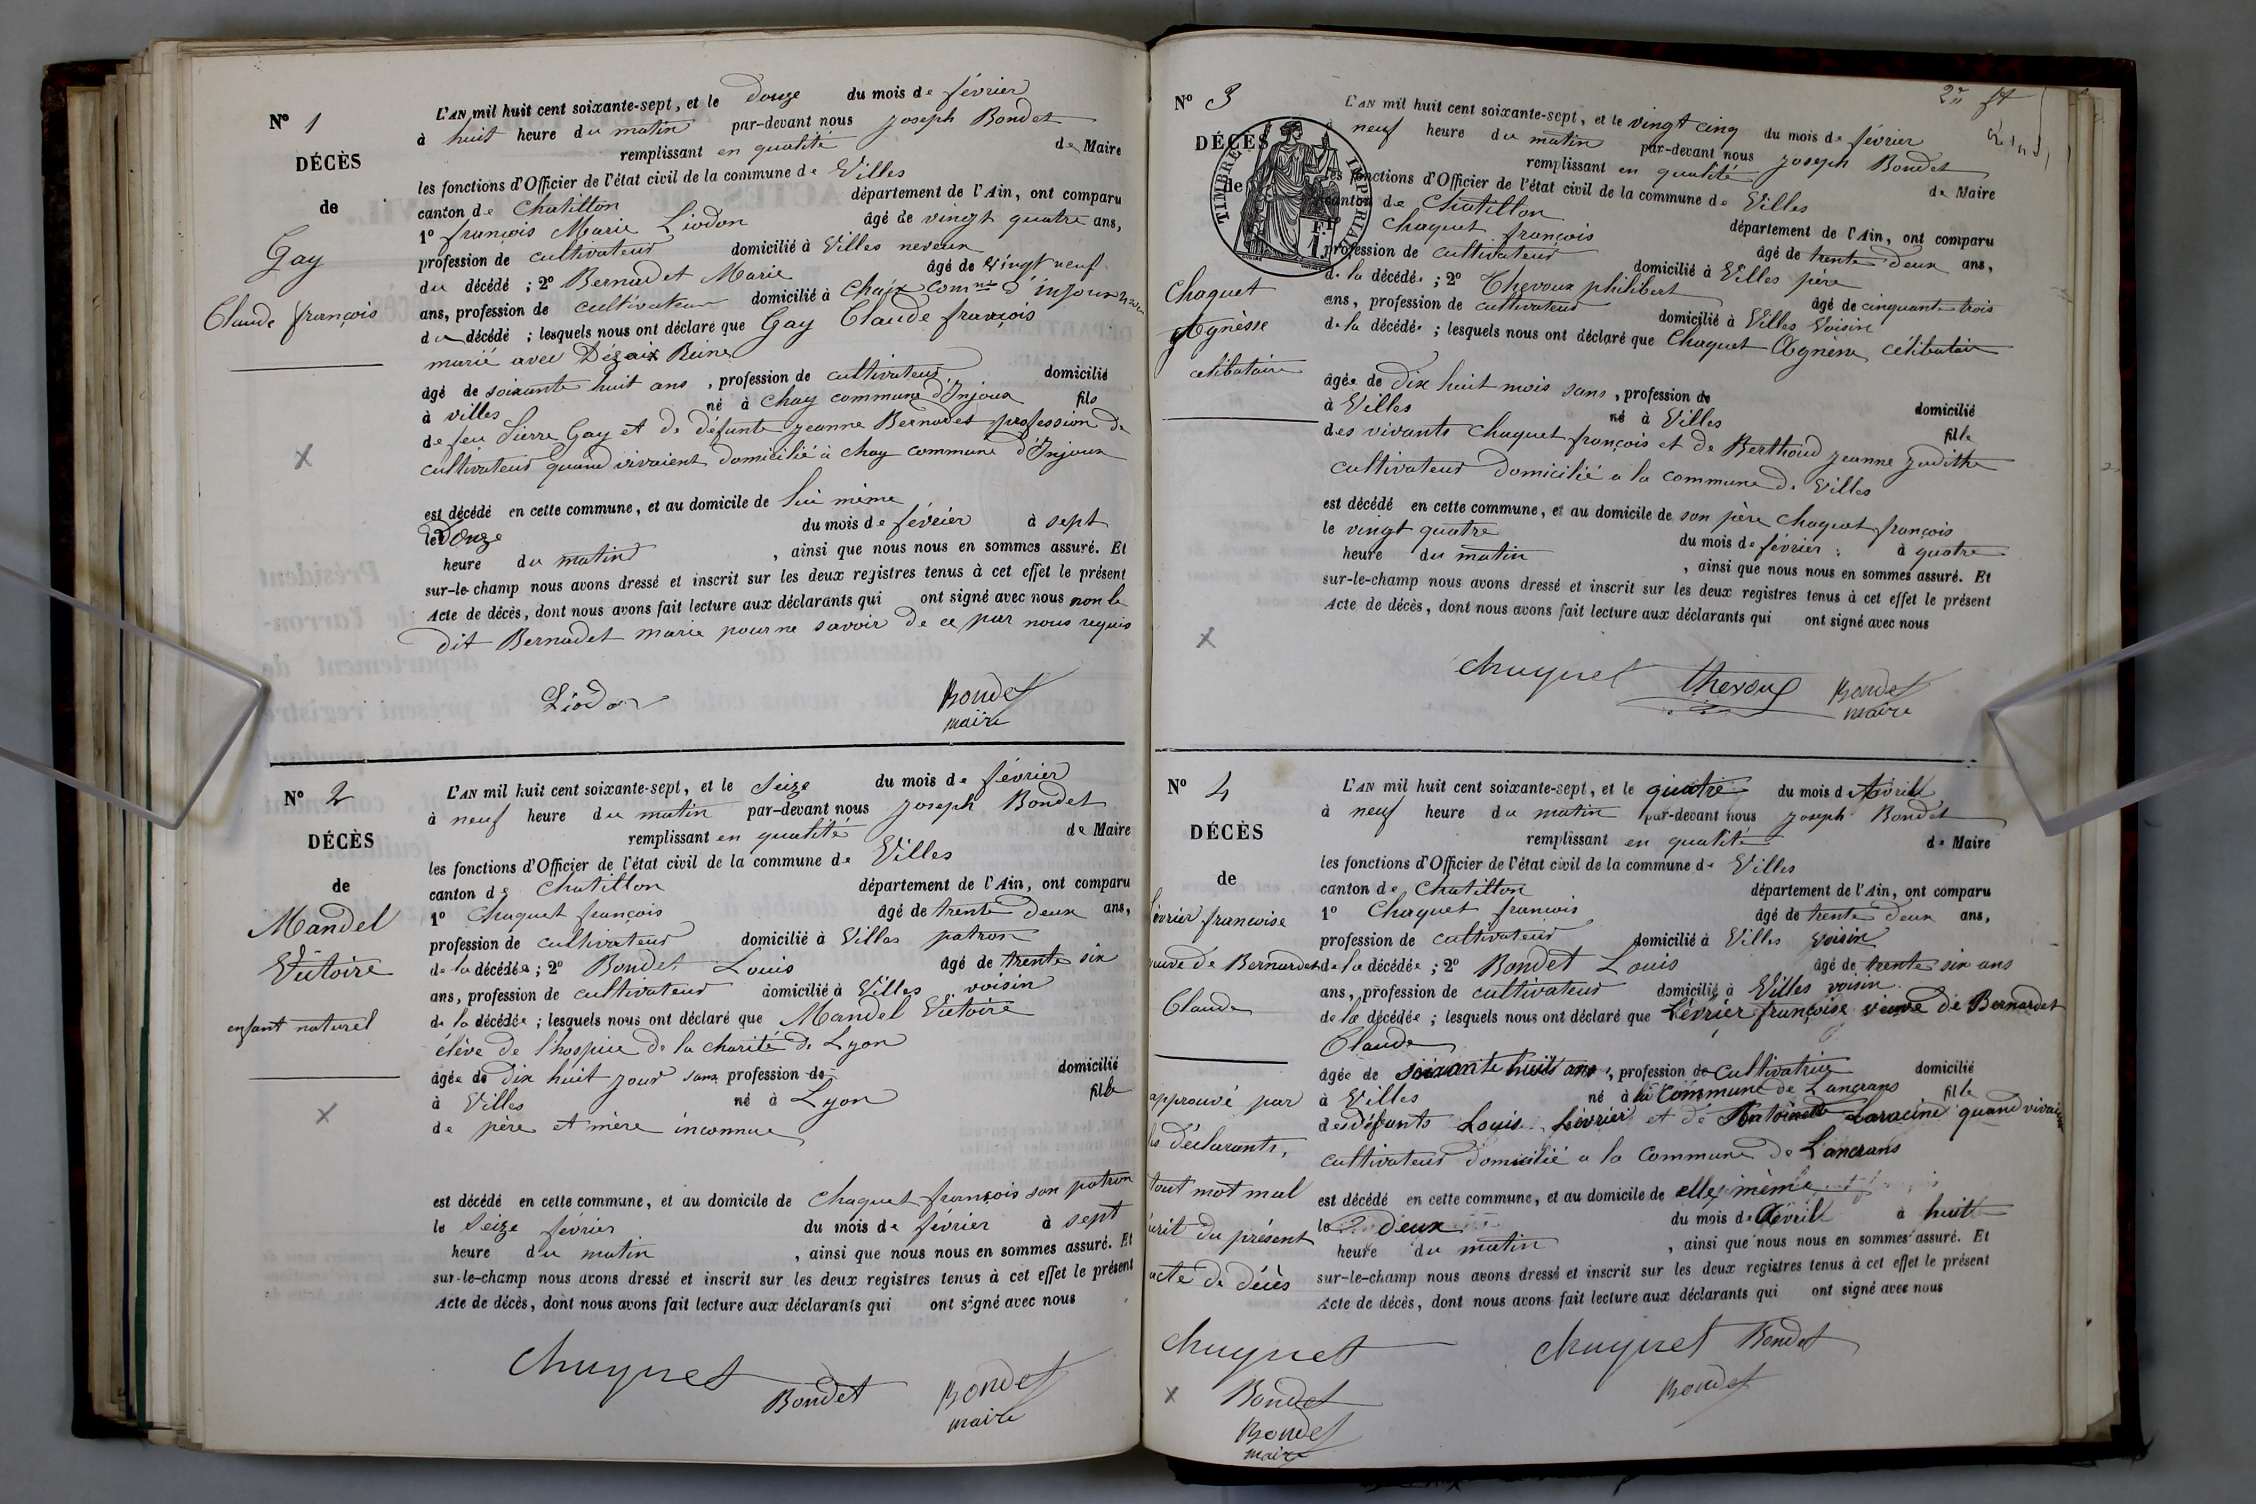 N° 1
DÉCÈS
de
Gay
Claude françois
L'AN mil huit cent soixante-sept, et le douze du mois de février
à huit heure du matin par-devant nous joseph Bondet
remplissant en qualité de Maire
les fonctions d'Officier de l'état civil de la commune de Villes
canton de Chatillon département de l'Ain, ont comparu
1° françois Marie Liodon âgé de vingt quatre ans,
profession de cultivateur domicilié à Villes neveux
du décédé ; 2° Bernadet Marie âgé de vingt neuf
ans, profession de cultivateur domicilié à Chaix comne d'injoux
du décédé ; lesquels nous ont déclaré que Gay Claude françois
marié avec Dézaix Reine
âgé de soixante huit ans, profession de cultivateur domicilié
à villes né à Chay commune d'Injoux fils
de feu Pierre Gay et de défunte jeanne Bernadet profession de
cultivateur quand vivaient domicilié à chay commune d'Injoux
est décédé en cette commune, et au domicile de lui même
le onze du mois de février à sept
heure du matin, ainsi que nous nous en sommes assuré. Et
sur-le-champ nous avons dressé et inscrit sur les deux registres tenus à cet effet le présent
Acte de décès, dont nous avons fait lecture aux déclarants qui ont signé avec nous non le
dit Bernadet marie pour ne savoir de ce par nous requis
Liodon
Bondet
maire
N° 2
DÉCÈS
de
Mandel
Victoire
enfant naturel
L'AN mil huit cent soixante-sept, et le Seize du mois de février
à neuf heure du matin par-devant nous joseph Bondet
remplissant en qualité de Maire
les fonctions d'Officier de l'état civil de la commune de Villes
canton de Chatillon département de l'Ain, ont comparu
1° Chaquet françois âgé de trente deux ans,
profession de cultivateur domicilié à Villes patron
de la décédée ; 2° Bondet Louis âgé de trente six
ans, profession de cultivateur domicilié à Villes voisin
de la décédée ; lesquels nous ont déclaré que Mandel Victoire
élève de l'hospice de la charité de Lyon
âgée de dix huit jour sans profession de domicilié
à Villes né à Lyon fille
de père et mère inconnue
est décédé en cette commune, et au domicile de Chaquet françois son patron
le Seize février du mois de février à sept
heure du matin, ainsi que nous nous en sommes assuré. Et
sur-le-champ nous avons dressé et inscrit sur les deux registres tenus à cet effet le présent
Acte de décès, dont nous avons fait lecture aux déclarants qui ont signé avec nous
Chuquet
Bondet
Bondet
maire
N° 3
DÉCÈS
de
TIMBRE IMPÉRIAL
1 F.
Chaquet
Agnèsse
célibataire
L'AN mil huit cent soixante-sept, et le vingt cinq du mois de février
à neuf heure du matin par-devant nous joseph Bondet
remplissant en qualité de Maire
les fonctions d'Officier de l'état civil de la commune de Villes
canton de Chatillon département de l'Ain, ont comparu
1° Chaquet françois âgé de trente deux ans,
profession de cultivateur domicilié à Villes père
de la décédée ; 2° Thevoux philibert âgé de cinquante trois
ans, profession de cultivateur domicilié à Villes Voisin
de la décédée ; lesquels nous ont déclaré que Chaquet Agnèse célibataire
âgée de Dix huit mois sans, profession de
à Villes né à Villes domicilié
des vivants Chaquet françois et de Berthoud jeanne judithe fille
cultivateur domicilié a la commune de Villes
est décédé en cette commune, et au domicile de son père Chaquet françois
le vingt quatre du mois de février à quatre
heure du matin, ainsi que nous nous en sommes assuré. Et
sur-le-champ nous avons dressé et inscrit sur les deux registres tenus à cet effet le présent
Acte de décès, dont nous avons fait lecture aux déclarants qui ont signé avec nous
Chuquet
thevoux
Bondet
maire
N° 4
DÉCÈS
de
Lévrier francoise
veuve de Bernardet
Claude
approuvé par
les déclarants,
tout mot mal
écrit du présent
acte de décès
Chuquet
Bondet
Bondet
maire
L'AN mil huit cent soixante-sept, et le quatre du mois d'Avril
à neuf heure du matin par-devant nous joseph Bondet
remplissant en qualité de Maire
les fonctions d'Officier de l'état civil de la commune de Villes
canton de Chatillon département de l'Ain, ont comparu
1° Chaquet francois âgé de trente deux ans,
profession de cultivateur domicilié à Villes voisin
de la décédée ; 2° Bondet Louis âgé de trente six ans
ans, profession de cultivateur domicilié à Villes voisin
de la décédée ; lesquels nous ont déclaré que Lévrier françoise veuve de Bernardet
Claude
âgée de soixante huit ans, profession de Cultivatrice domicilié
à Villes né à la Commune de Lancrans fille
des défunts Louis Lévrier et de Antoinette Laracine quand vivaient
cultivateur domicilié a la commune de Lancrans
est décédé en cette commune, et au domicile de elle même
le deux du mois de Avril à huit
heure du matin, ainsi que nous nous en sommes assuré. Et
sur-le-champ nous avons dressé et inscrit sur les deux registres tenus à cet effet le présent
Acte de décès, dont nous avons fait lecture aux déclarants qui ont signé avec nous
Chuquet Bondet
Bondet